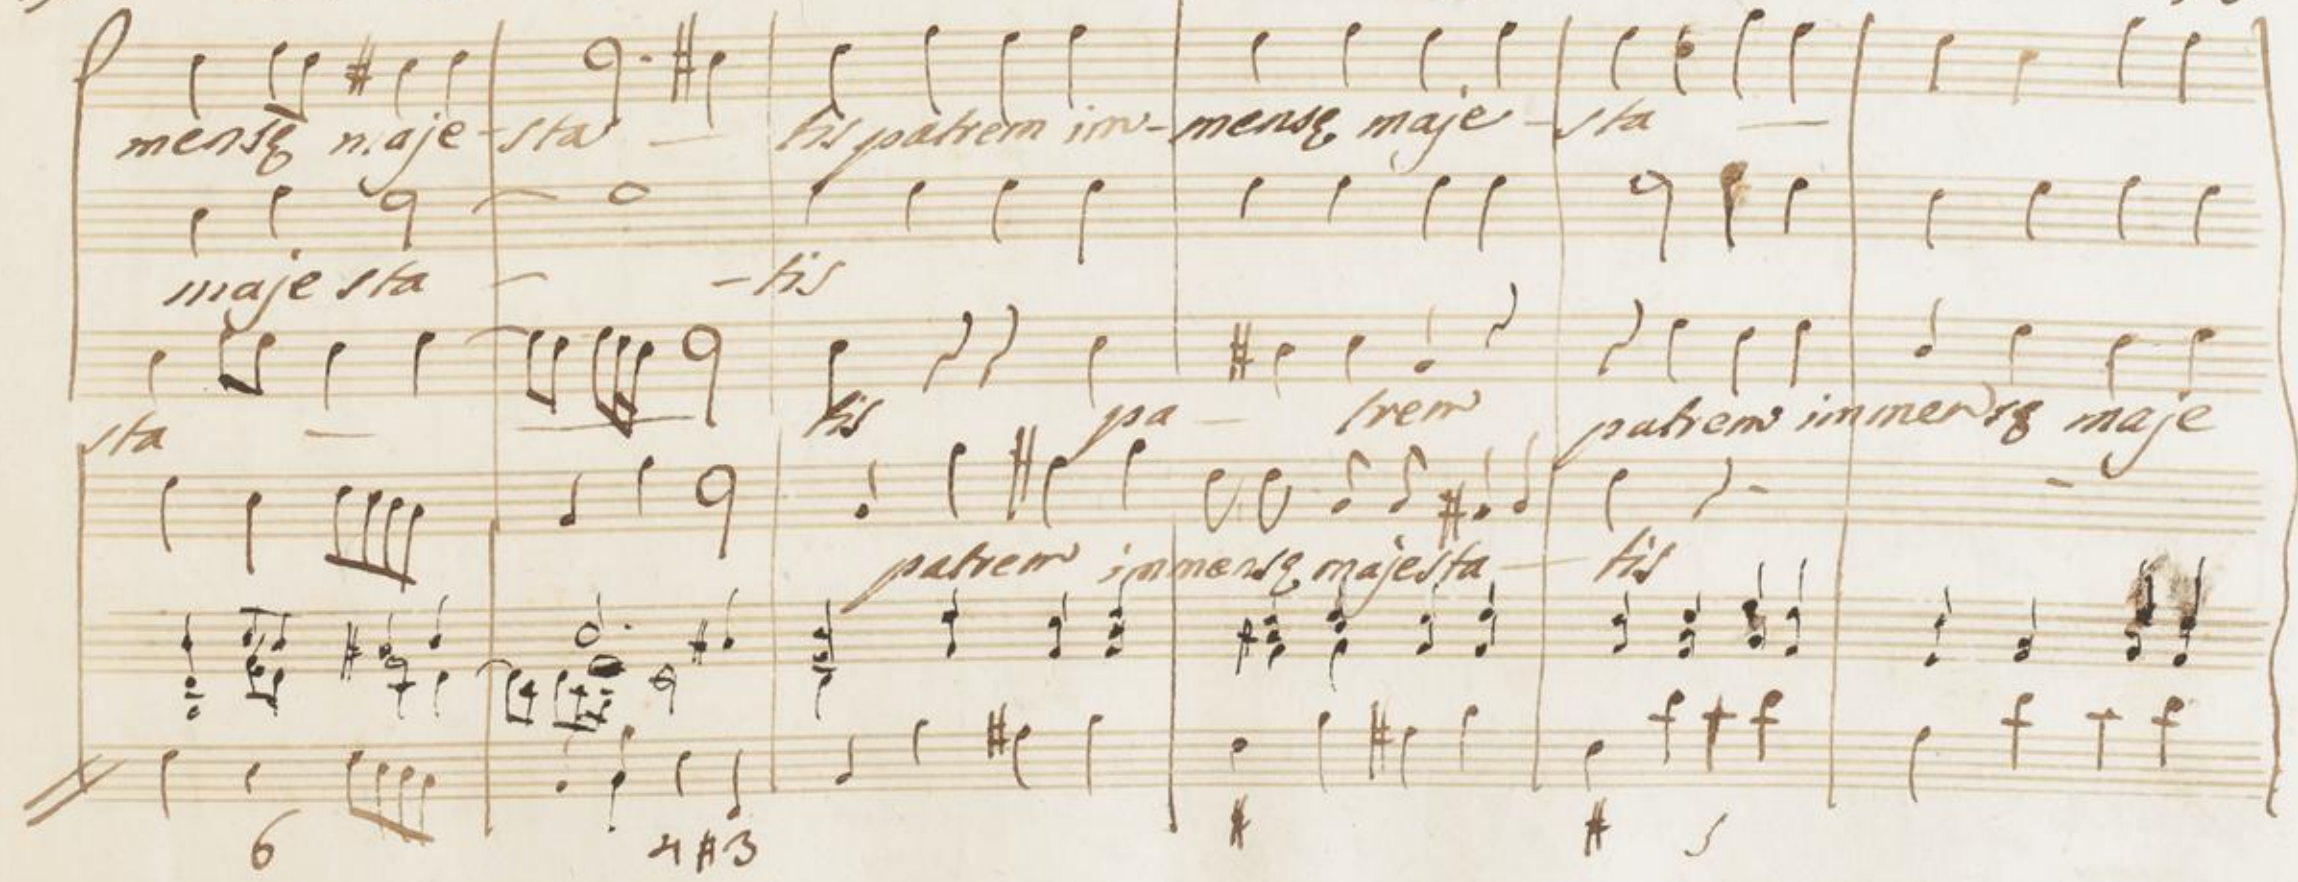 mensę maje-sta - tis patrem im-mensę maje-sta -
maje sta - - tis
sta - - tis pa - trem patrem immensę maje
patrem immensę majesta - tis
6 4 #3 # # 5